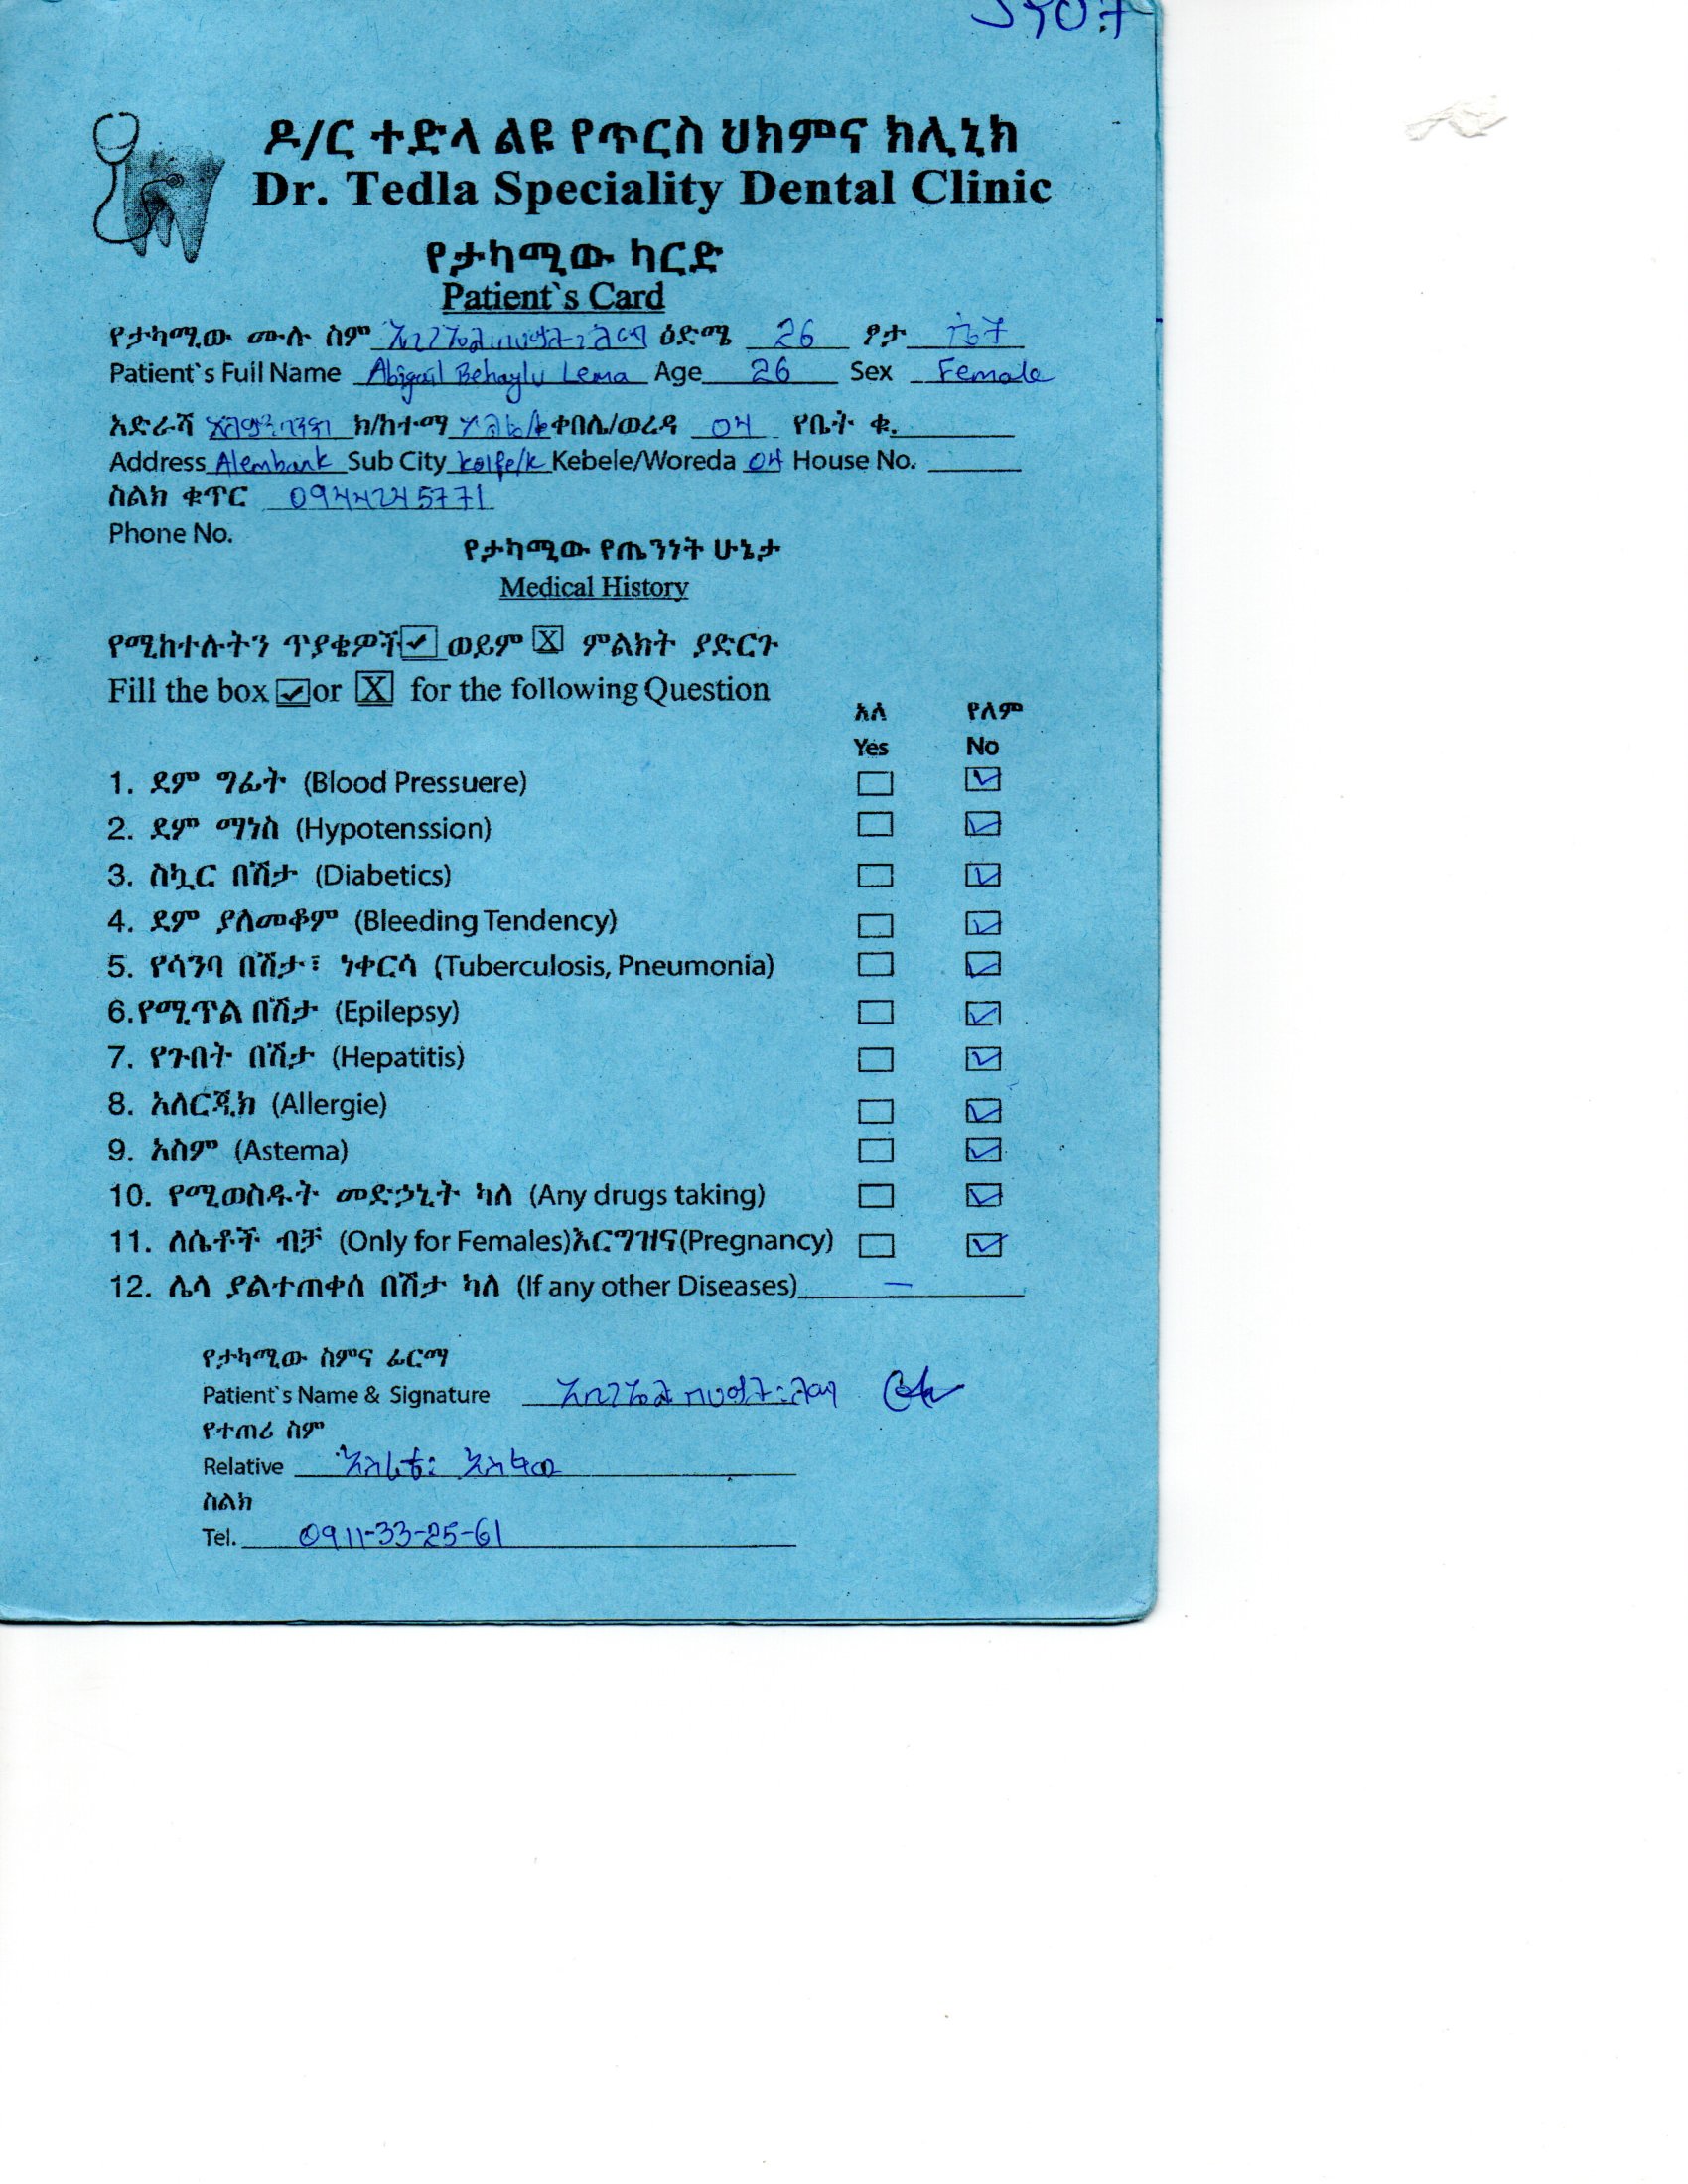 ዶ/ር ተድላ ልዩ የጥርስ ህክምና ክሊኒክ
Dr. Tedla Speciality Dental Clinic
የታካሚው ካርድ
Patient`s Card
የታካሚው ሙሉ ስም አቢጌል በሀይሉ ለማ ዕድሜ 26 ፆታ ሴት
Patient`s Full Name Abigail Behaylu Lema Age 26 Sex Female
አድራሻ አለምባንክ ክ/ከተማ ኮልፌ/ቀ ቀበሌ/ወረዳ 04 የቤት ቁ.
Address Alembank Sub City kolfe/k Kebele/Woreda 04 House No.
ስልክ ቁጥር 0944245771
Phone No.
የታካሚው የጤንነት ሁኔታ
Medical History
የሚከተሉትን ጥያቄዎች ✓ ወይም X ምልክት ያድርጉ
Fill the box ✓ or X for the following Question
አለ የለም
Yes No
1. ደም ግፊት (Blood Pressuere) ✓
2. ደም ማነስ (Hypotenssion) ✓
3. ስኳር በሽታ (Diabetics) ✓
4. ደም ያለመቆም (Bleeding Tendency) ✓
5. የሳንባ በሽታ፣ ነቀርሳ (Tuberculosis, Pneumonia) ✓
6.የሚጥል በሽታ (Epilepsy) ✓
7. የጉበት በሽታ (Hepatitis) ✓
8. አለርጂክ (Allergie) ✓
9. አስም (Astema) ✓
10. የሚወስዱት መድኃኒት ካለ (Any drugs taking) ✓
11. ለሴቶች ብቻ (Only for Females)እርግዝና(Pregnancy) ✓
12. ሌላ ያልተጠቀሰ በሽታ ካለ (If any other Diseases) –
የታካሚው ስምና ፊርማ
Patient`s Name & Signature አቢጌል በሀይሉ ለማ
የተጠሪ ስም
Relative
ስልክ
Tel. 0911-33-25-61